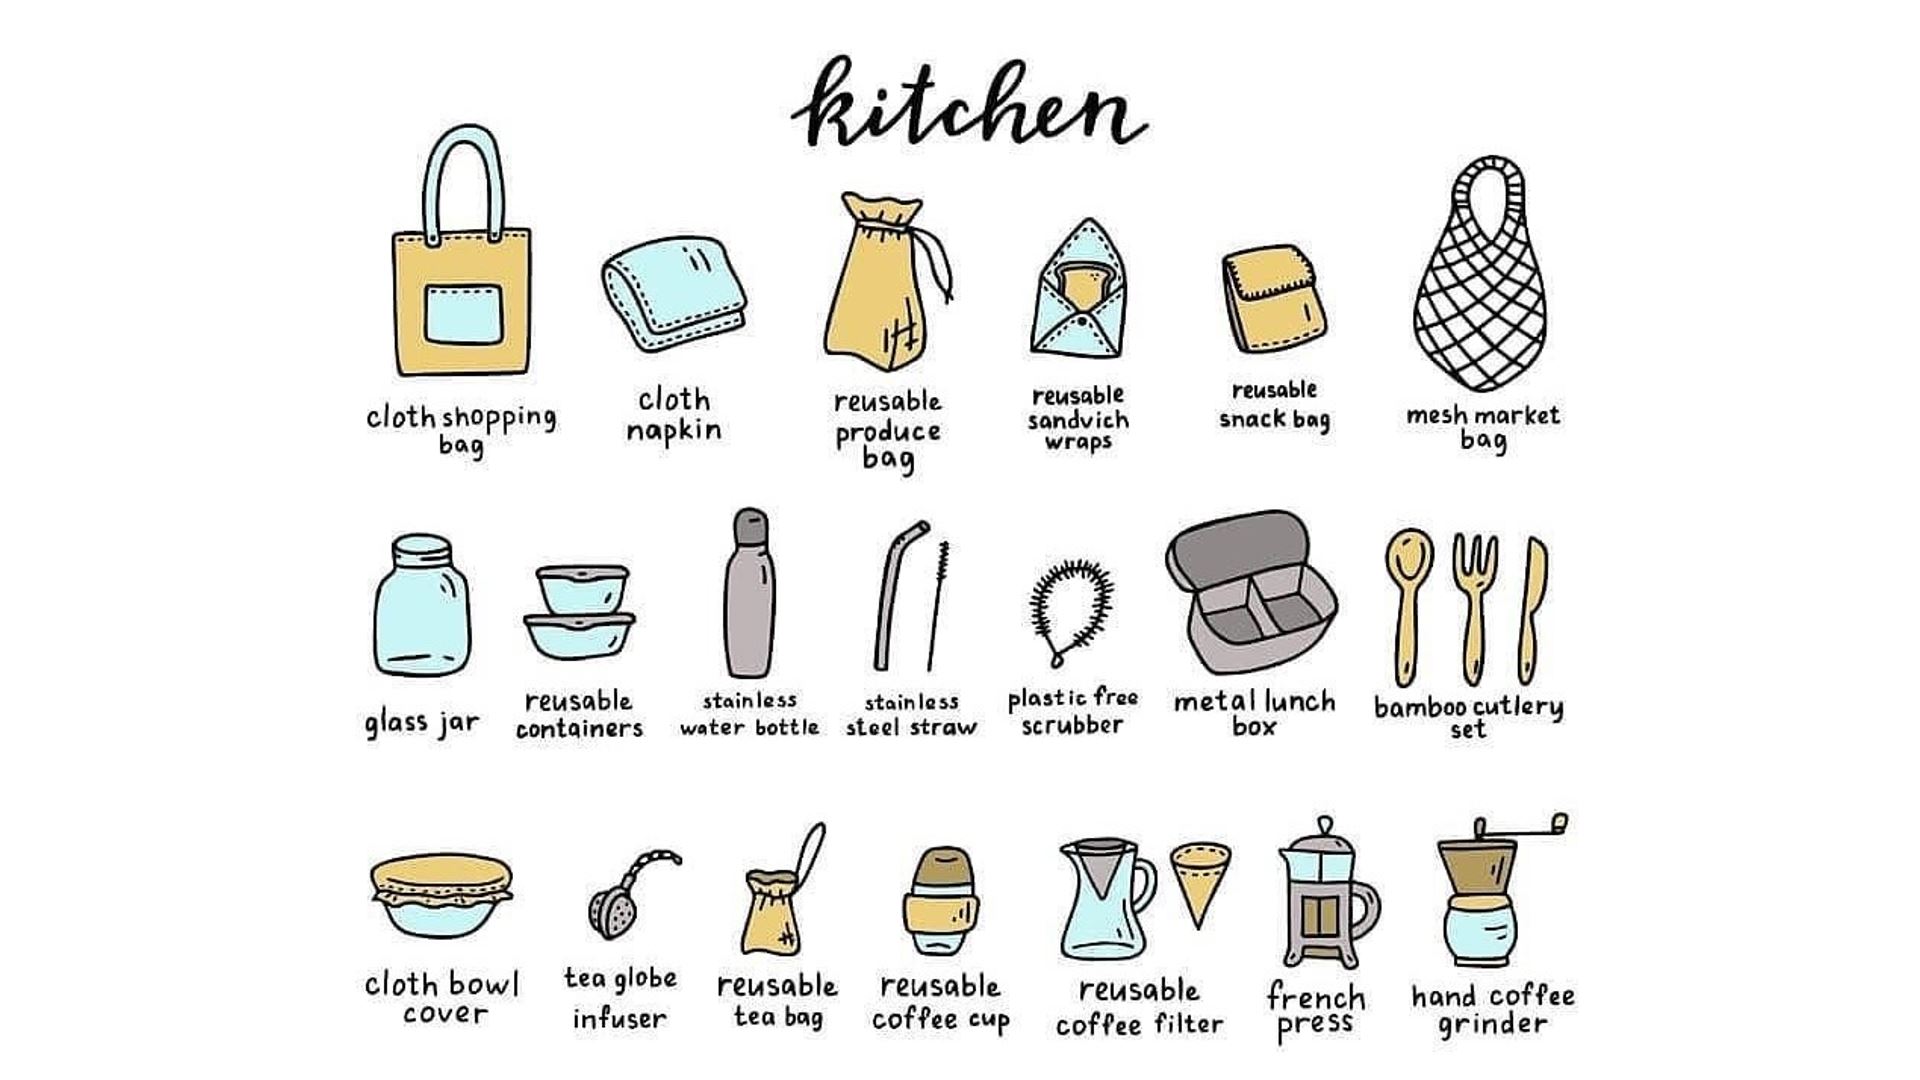 kitchen
cloth shopping
bag
cloth
napkin
reusable
produce
bag
reusable
sandvich
wraps
reusable
snack bag
mesh market
bag
glass jar
reusable
containers
stainless
water bottle
stainless
steel straw
plastic free
scrubber
metal lunch
box
bamboo cutlery
set
cloth bowl
cover
tea globe
infuser
reusable
tea bag
reusable
coffee cup
reusable
coffee filter
french
press
hand coffee
grinder